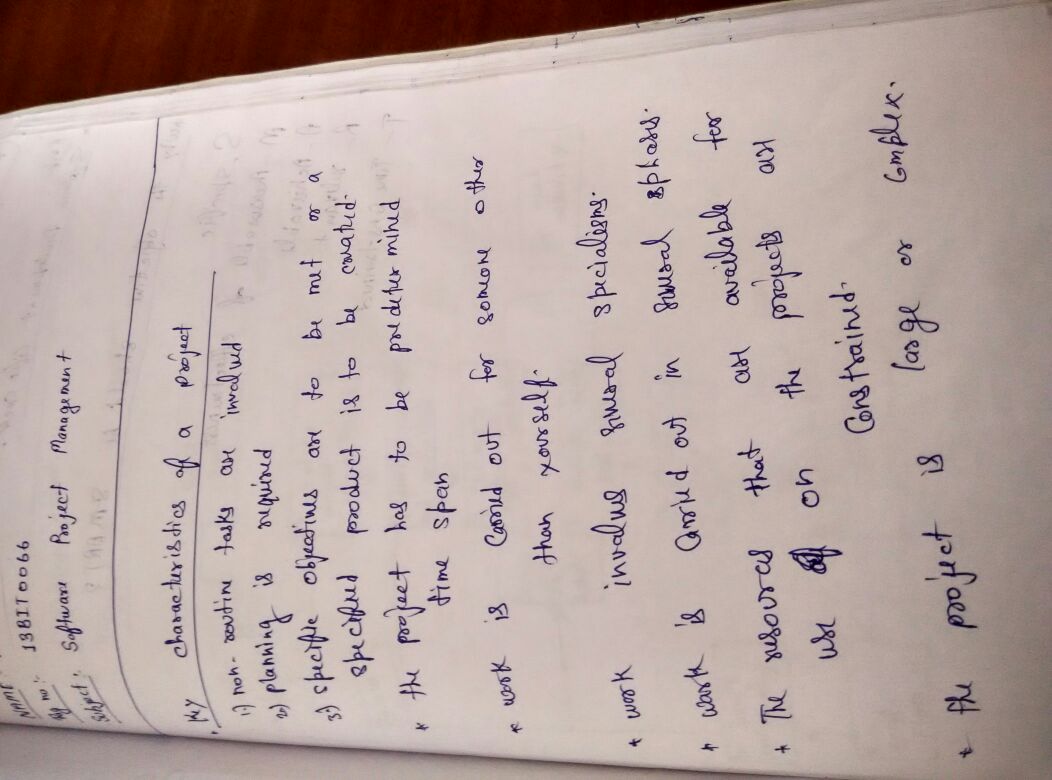 NAME :
Rg no : 13BIT0066
Subject : Software Project Management
Key characteristics of a project
1) non-routine tasks are involved
2) planning is required
3) specific objectives are to be met or a
specified product is to be created.
* the project has to be predetermined
time span
* work is Carried out for someone other
than yourself.
* work involves several specialisms.
* work is Carried out in several sphases.
* The resources that are available for
use on the projects are
Constrained.
* the project is large or Complex.